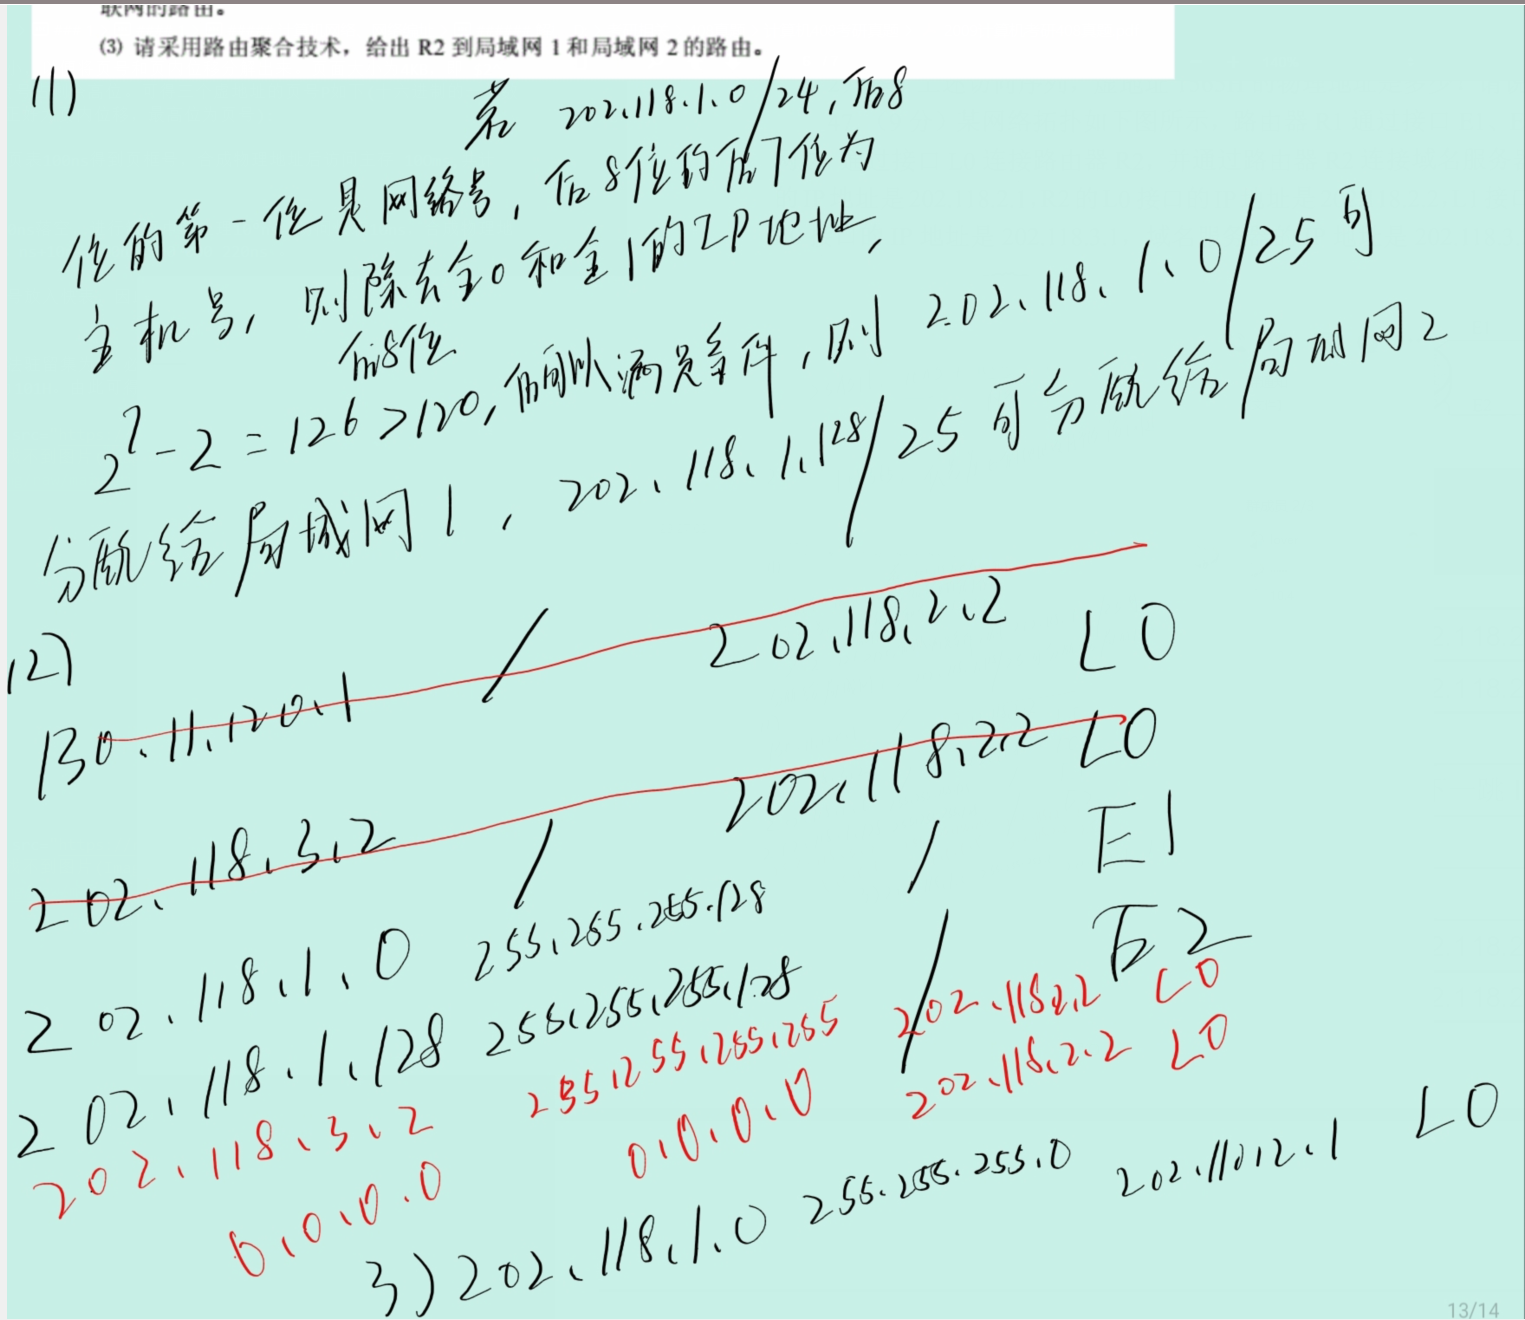 联网的路由。
(3) 请采用路由聚合技术，给出 R2 到局域网 1 和局域网 2 的路由。
(1)
若 202.118.1.0/24，后8
位的第一位是网络号，后8位的后7位为
主机号，则除去全0和全1的IP地址，
后8位
2^7-2=126>120，所以满足条件，则 202.118.1.0/25 可
分配给局域网1，202.118.1.128/25 可分配给局域网2
(2)
130.11.120.1 / 202.118.2.2 L0
202.118.3.2 / 202.118.2.2 L0
202.118.1.0 255.255.255.128 / E1
202.118.1.128 255.255.255.128 / E2
202.118.3.2 255.255.255.255 202.118.2.2 L0
0.0.0.0 0.0.0.0 202.118.2.2 L0
3) 202.118.1.0 255.255.255.0 202.118.2.1 L0
13/14